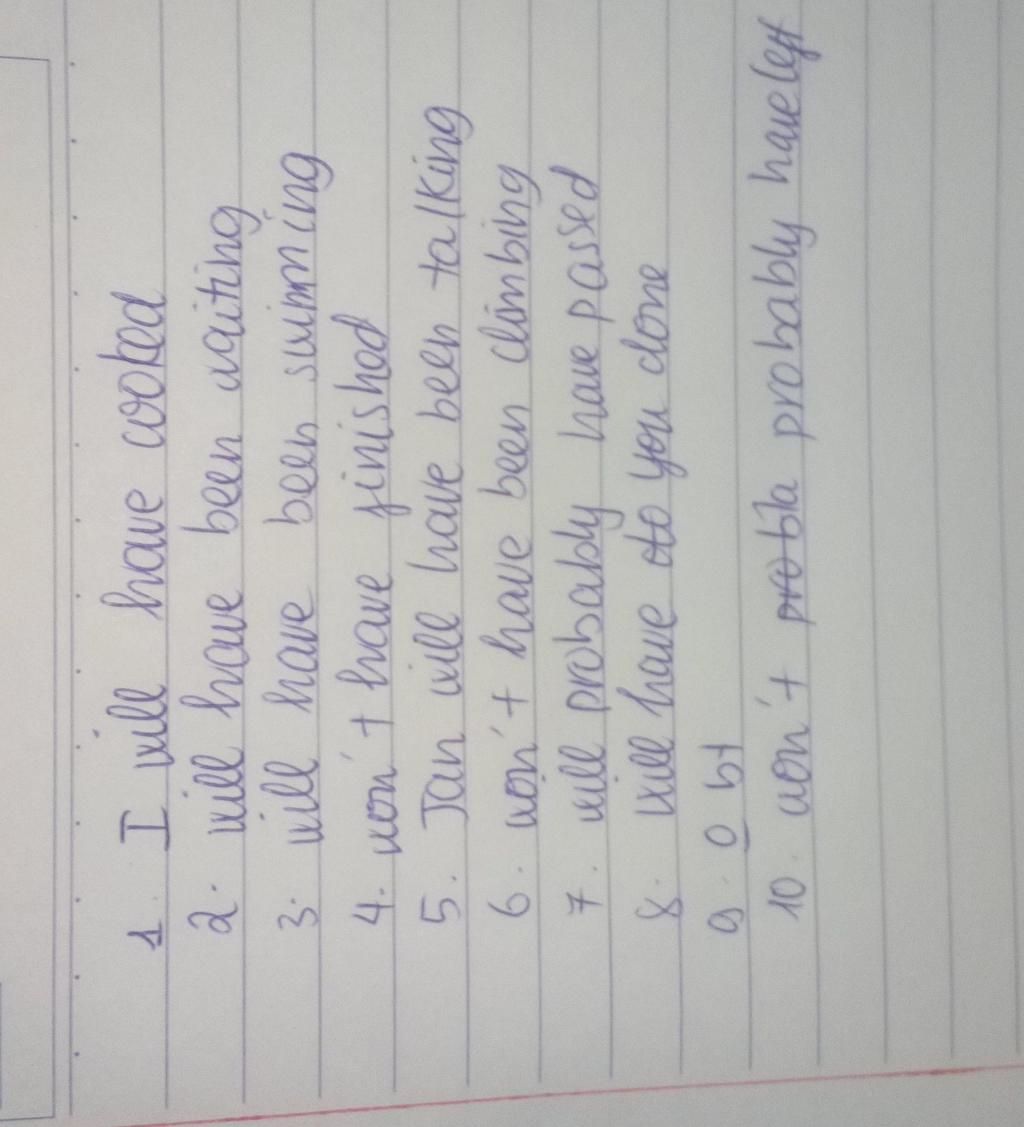 1. I will have cooked
2. will have been waiting
3. will have been swimming
4. won't have finished
5. Jan will have been talking
6. won't have been climbing
7. will probably have passed
8. will have do you done
9. 0 bł
10. won't probla probably have left